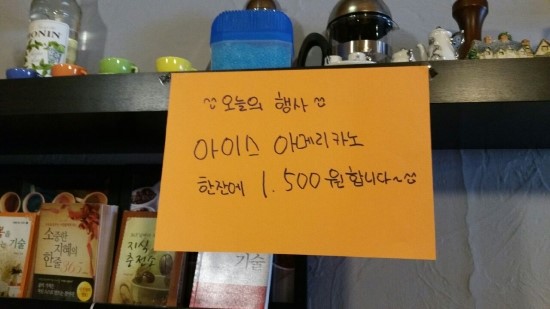 MONIN
오늘의 행사
아이스 아메리카노
한잔에 1.500원합니다~
소중한
지혜의
한줄 365
지식
충전소
기술
는 기술